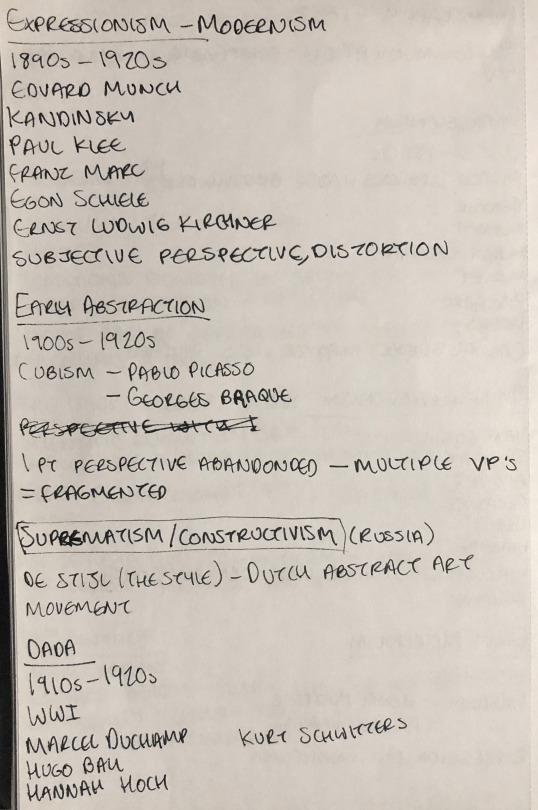 EXPRESSIONISM - MODERNISM
1890s - 1920s
EDVARD MUNCH
KANDINSKY
PAUL KLEE
FRANZ MARC
EGON SCHIELE
ERNST LUDWIG KIRCHNER
SUBJECTIVE PERSPECTIVE, DISTORTION
EARLY ABSTRACTION
1900s - 1920s
CUBISM - PABLO PICASSO
- GEORGES BRAQUE
PERSPECTIVE
1 PT PERSPECTIVE ABANDONDED - MULTIPLE VP'S
= FRAGMENTED
SUPREMATISM / CONSTRUCTIVISM (RUSSIA)
DE STIJL (THE STYLE) - DUTCH ABSTRACT ART
MOVEMENT
DADA
1910s - 1920s
WWI
MARCEL DUCHAMP KURT SCHWITTERS
HUGO BALL
HANNAH HOCH